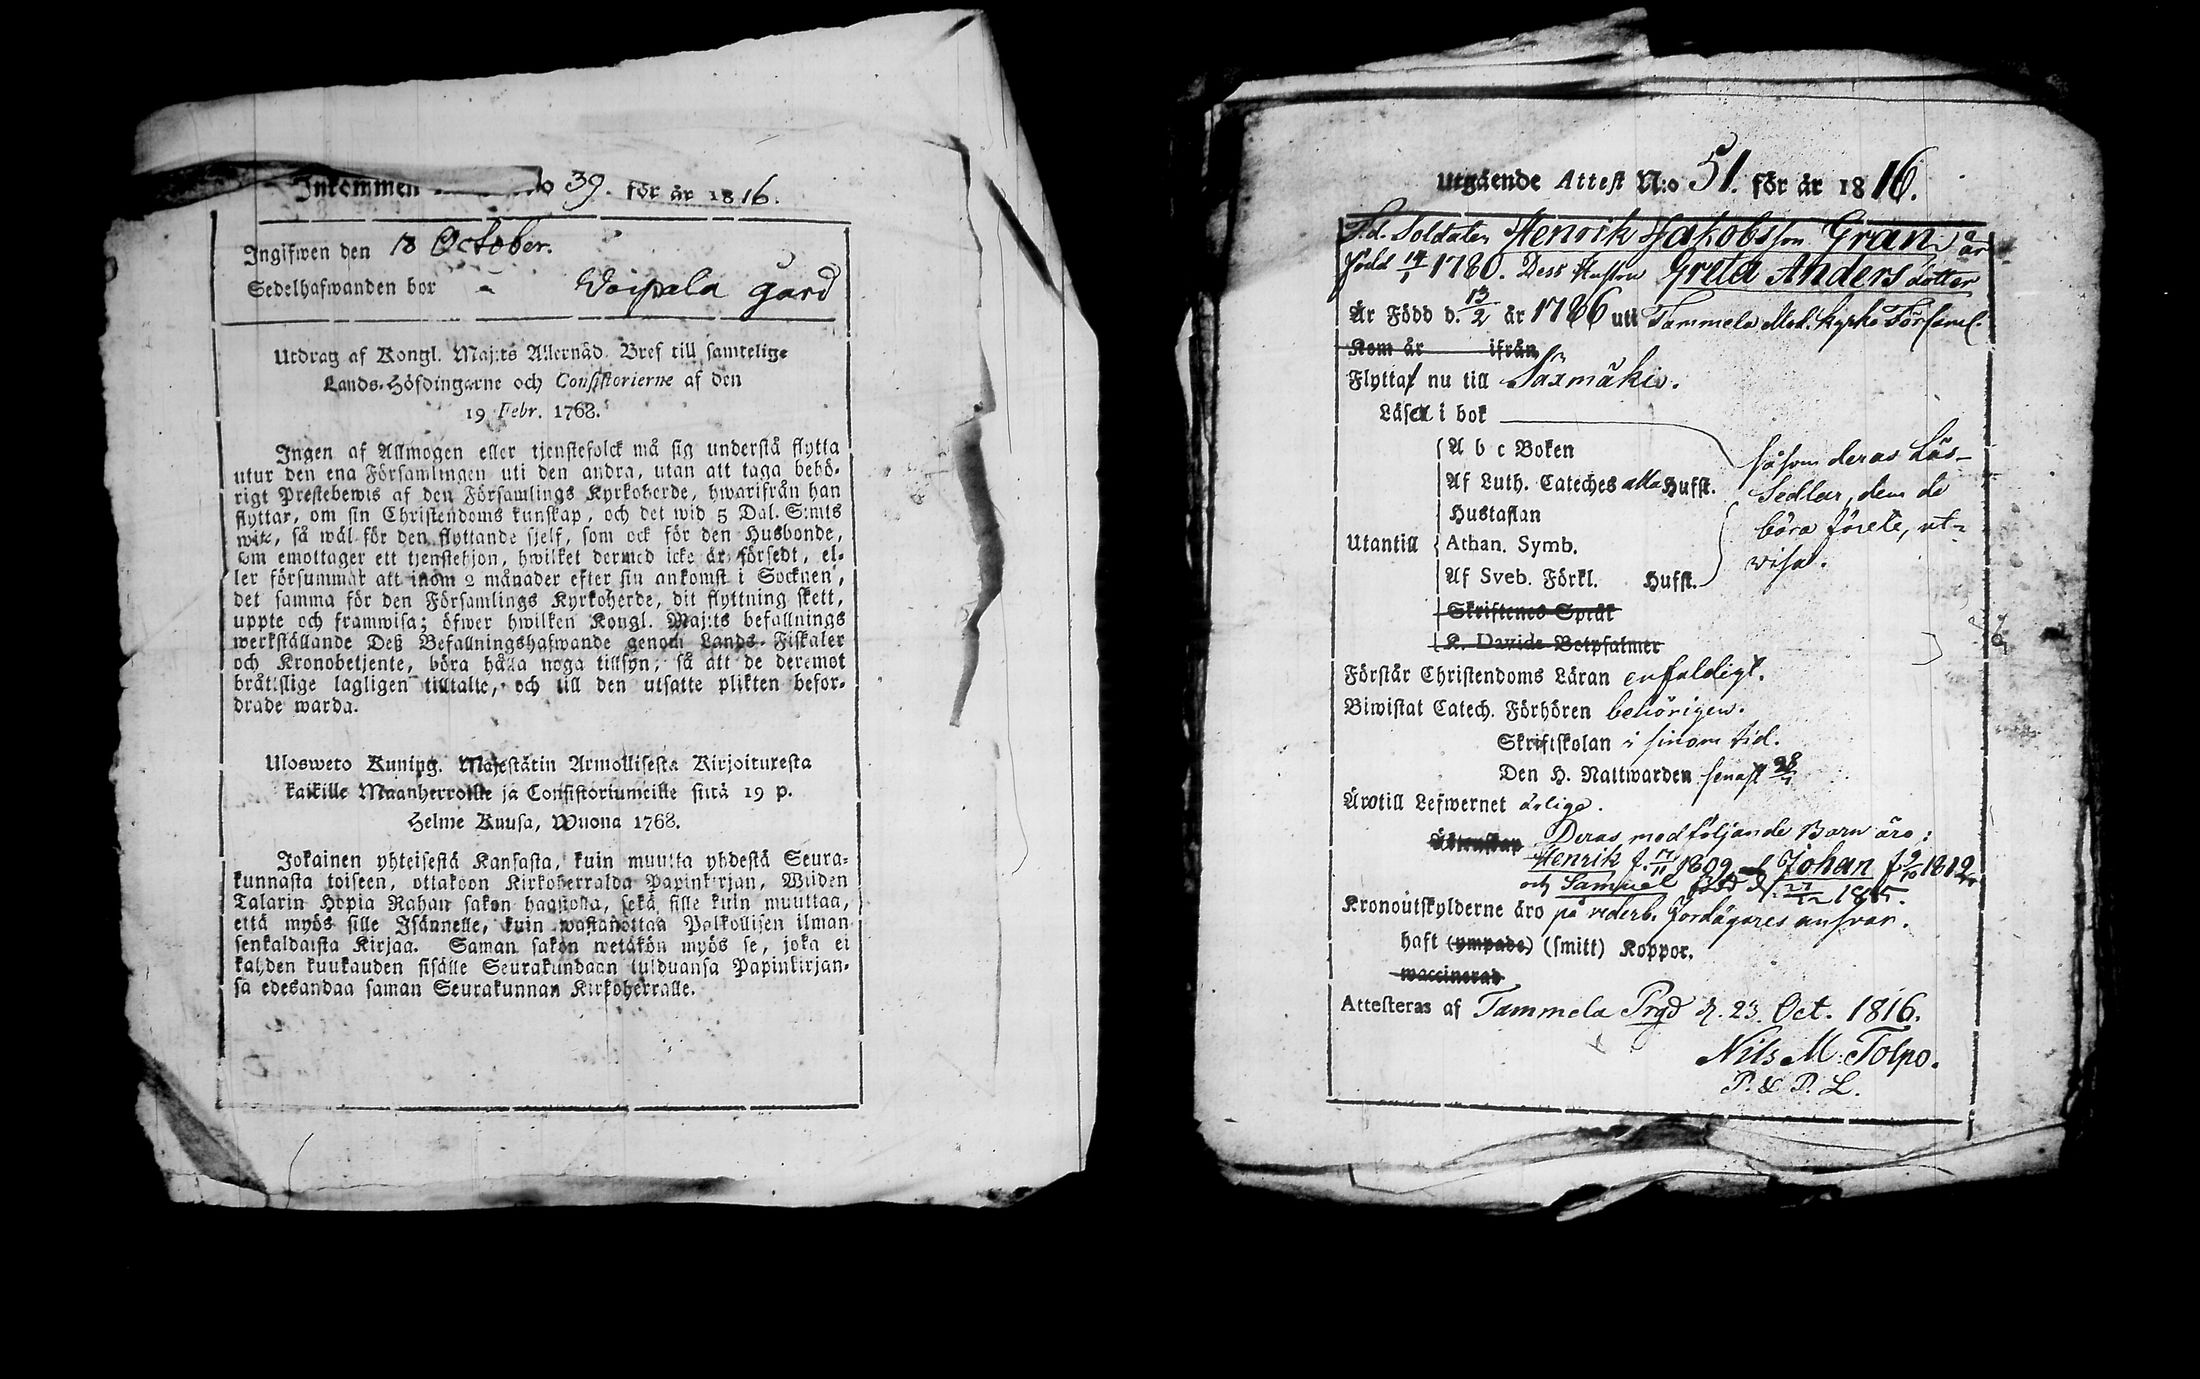 Inkommen No 39. för år 1816.
Ingifwen den 18 October.
Sedelhafwanden bor Woipala gård
Utdrag af Kongl. Maj:ts Allernåd. Bref till samtelige
Lands-Höfdingarne och Consistorierne af den
19 Febr. 1768.
Ingen af Allmogen eller tjenstefolck må sig understå flytta
utur den ena Församlingen uti den andra, utan att taga behö-
rigt Prestebewis af den Församlings Kyrkoherde, hwarifrån han
flyttar, om sin Christendoms kunskap, och det wid 5 Dal. S:mts
wite, så wäl för den flyttande sjelf, som ock för den Husbonde,
som emottager ett tjenstehjon, hwilket dermed icke är försedt, el-
ler försummar att inom 2 månader efter sin ankomst i Socknen,
det samma för den Församlings Kyrkoherde, dit flyttning skett,
uppte och framwisa; öfwer hwilken Kongl. Maj:ts befallnings
werkställande Deß Befallningshafwande genom Lands-Fiskaler
och Kronobetjente, böra hålla noga tillsyn, så att de deremot
bråttslige lagligen tilltalte, och till den utsatte plikten befor-
drade warda.
Ulosweto Kuning. Majestätin Armollisesta Kirjoituresta
kaikille Maanherroille ja Consistoriumeille siitä 19 p.
Helme Kuusa, Wuona 1768.
Jokainen yhteisestä Kansasta, kuin muutta yhdestä Seura-
kunnasta toiseen, ottakoon Kirkoherralda Papinkirjan, Wiiden
Talarin Hopia Rahan sakon haastolla, sekä sille kuin muuttaa,
että myös sille Isännelle, kuin wastanottaa Palkollisen ilman
senkaldaista Kirjaa. Saman sakon wetäkön myös se, joka ei
kahden kuukauden sisälle Seurakundaan tulduansa Papinkirjan-
sa edesandaa saman Seurakunnan Kirkoherralle.
Utgående Attest N:o 51. för år 1816.
F.d. Soldaten Henrik Jakobsson Gran är
född 14/1 1780. Dess Hustru Greta Anders dotter
Är Född d. 13/2 år 1786 uti Tammela Mod. kyrko Församl.
Kom år ifrån
Flytta nu till Säxmäki.
Läsa i bok
A b c Boken
såsom deras Läs-
Af Luth. Cateches alla Hufst.
Sedlar, dem de
Hustaflan
böra förete, ut-
Utantill Athan. Symb.
wisa.
Af Sveb. Förkl. Hufst.
Skriftenes Språk
K. Davids Botpsalmer
Förstår Christendoms Läran enfaldigt.
Biwistat Catech. Förhören behörigen.
Skriftskolan i sinom tid.
Den H. Nattwarden senast 28/
Ärotill Lefwernet ärlige.
Deras medföljande Barn äro:
Henrik f. 1809, Johan f 2/10 1812
och Samuel född d. 1815.
Kronoutskylderne äro på vederb. Jordägares ansvar.
haft (ympade) (smitt) Koppor.
waccinerad
Attesteras af Tammela Prgd d. 23. Oct. 1816.
Nils M. Tolpo.
P. & P. L.